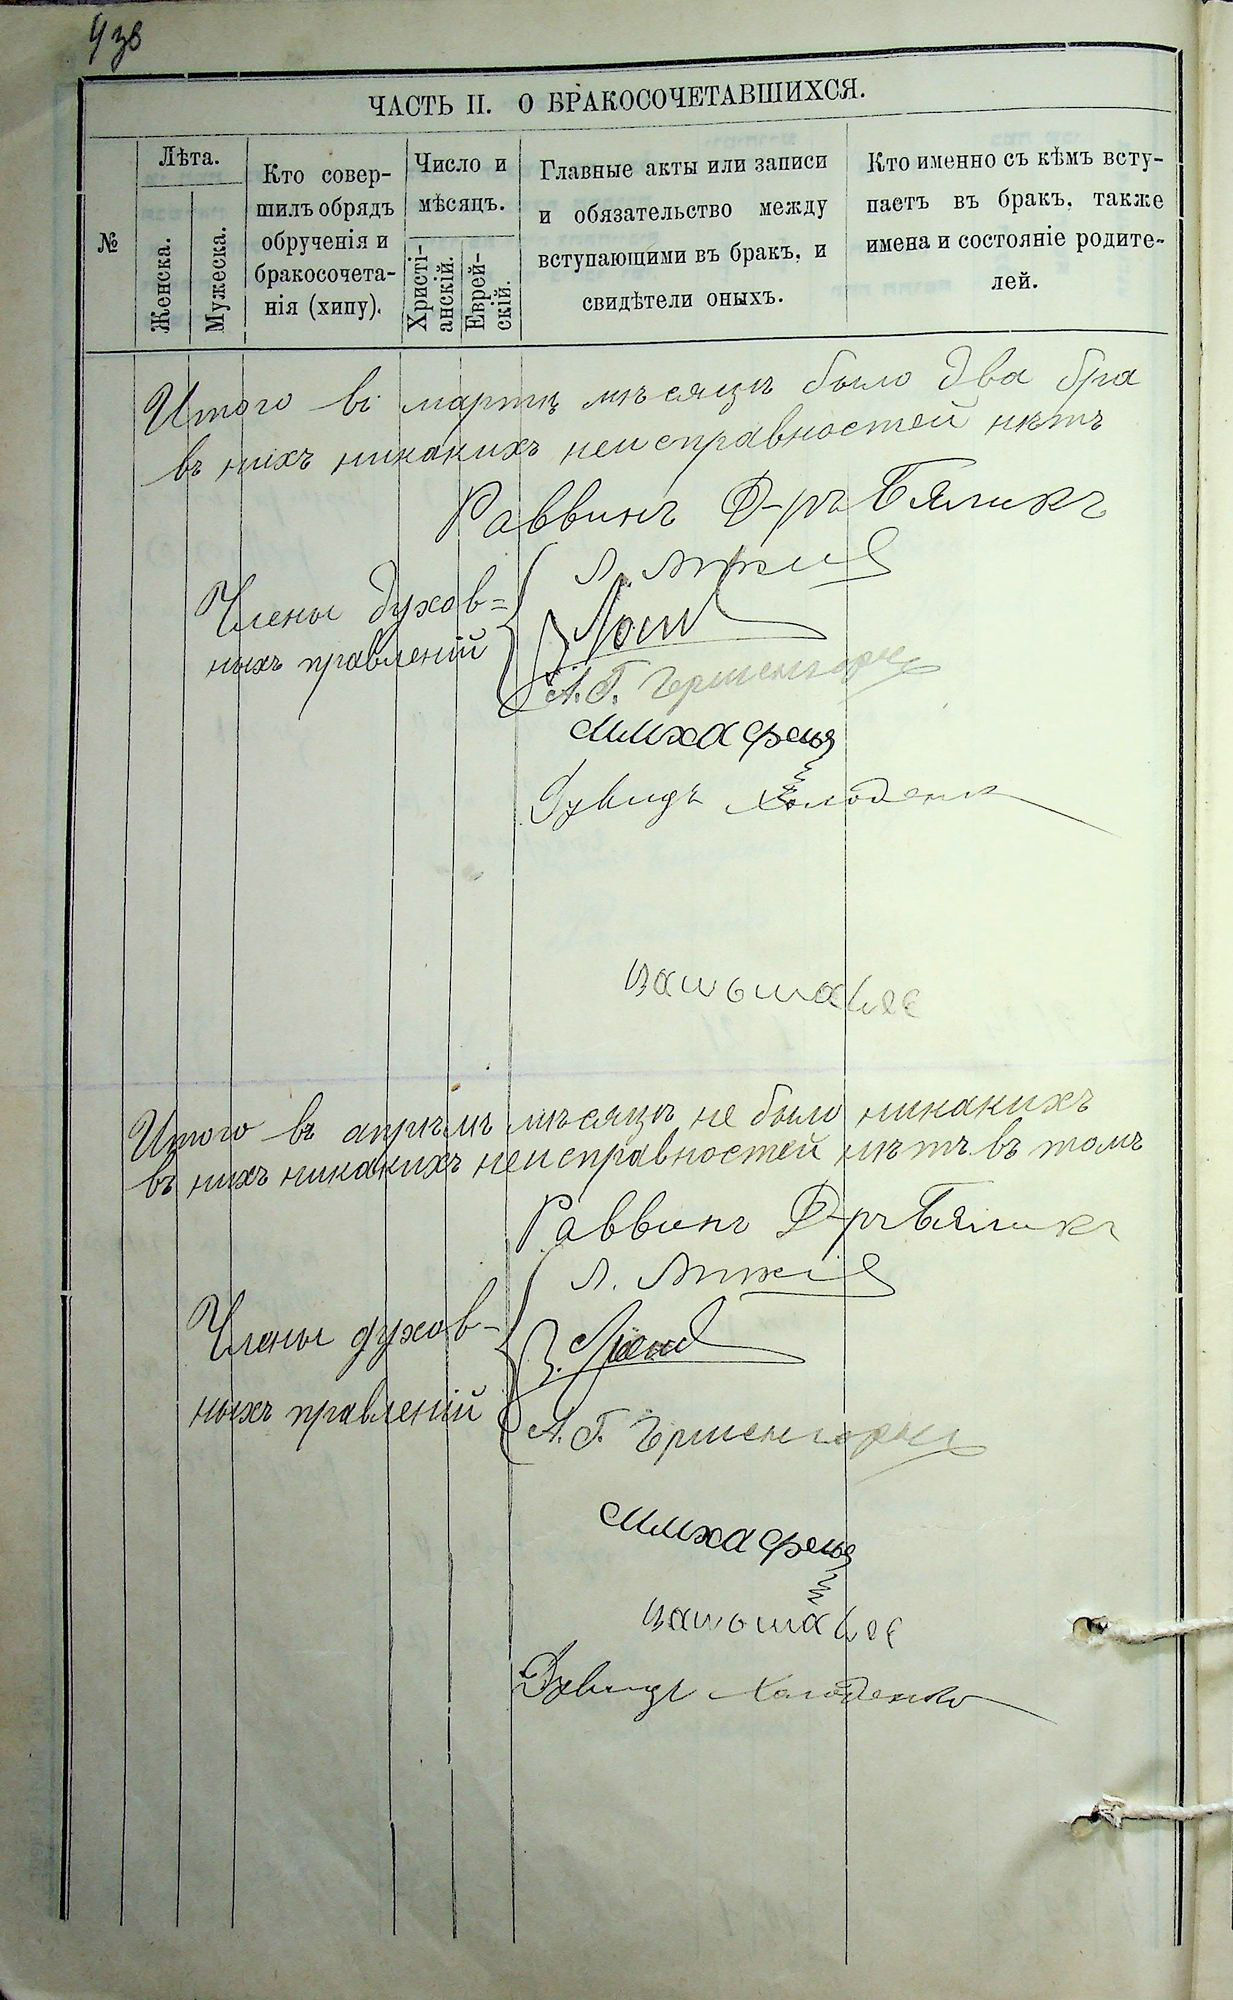 ЧАСТЬ II. О БРАКОСОЧЕТАВШИХСЯ.
№
Лѣта.
Женска.
Мужеска.
Кто совер-
шилъ обрядъ
обрученія и
бракосочета-
нія (хипу).
Число и
мѣсяцъ.
Христі-
анскій.
Еврей-
скій.
Главные акты или записи
и обязательство между
вступающими въ бракъ, и
свидѣтели оныхъ.
Кто именно съ кѣмъ всту-
паетъ въ бракъ, также
имена и состояніе родите-
лей.
Итого въ мартѣ мѣсяцѣ было два бра
въ нихъ никакихъ неисправностей нѣтъ
Раввинъ Д-ръ Бяликъ
Члены духов=
ныхъ правленій
А. Г.
Давидъ Холоденко
Итого въ апрѣлѣ мѣсяцѣ не было никакихъ
въ нихъ никакихъ неисправностей нѣтъ въ томъ
Раввинъ Д-ръ Бяликъ
Члены духов-
ныхъ правленій
А. Г.
Давидъ Холоденко